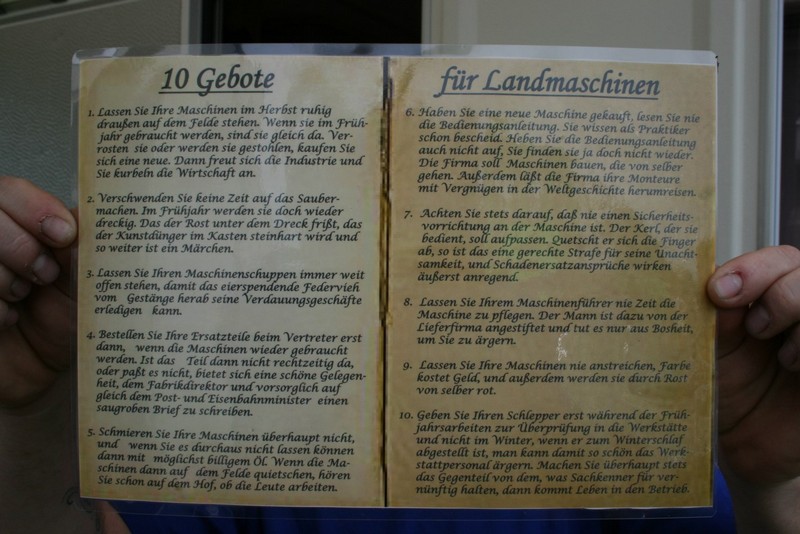 10 Gebote
1. Lassen Sie Ihre Maschinen im Herbst ruhig
draußen auf dem Felde stehen. Wenn sie im Früh-
jahr gebraucht werden, sind sie gleich da. Ver-
rosten sie oder werden sie gestohlen, kaufen Sie
sich eine neue. Dann freut sich die Industrie und
Sie kurbeln die Wirtschaft an.
2. Verschwenden Sie keine Zeit auf das Sauber-
machen. Im Frühjahr werden sie doch wieder
dreckig. Das der Rost unter dem Dreck frißt, das
der Kunstdünger im Kasten steinhart wird und
so weiter ist ein Märchen.
3. Lassen Sie Ihren Maschinenschuppen immer weit
offen stehen, damit das eierspendende Federvieh
vom Gestänge herab seine Verdauungsgeschäfte
erledigen kann.
4. Bestellen Sie Ihre Ersatzteile beim Vertreter erst
dann, wenn die Maschinen wieder gebraucht
werden. Ist das Teil dann nicht rechtzeitig da,
oder paßt es nicht, bietet sich eine schöne Gelegen-
heit, dem Fabrikdirektor und vorsorglich auf
gleich dem Post- und Eisenbahnminister einen
saugroben Brief zu schreiben.
5. Schmieren Sie Ihre Maschinen überhaupt nicht,
und wenn Sie es durchaus nicht lassen können
dann mit möglichst billigem Öl. Wenn die Ma-
schinen dann auf dem Felde quietschen, hören
Sie schon auf dem Hof, ob die Leute arbeiten.
für Landmaschinen
6. Haben Sie eine neue Maschine gekauft, lesen Sie nie
die Bedienungsanleitung. Sie wissen als Praktiker
schon bescheid. Heben Sie die Bedienungsanleitung
auch nicht auf, Sie finden sie ja doch nicht wieder.
Die Firma soll Maschinen bauen, die von selber
gehen. Außerdem läßt die Firma ihre Monteure
mit Vergnügen in der Weltgeschichte herumreisen.
7. Achten Sie stets darauf, daß nie einen Sicherheits-
vorrichtung an der Maschine ist. Der Kerl, der sie
bedient, soll aufpassen. Quetscht er sich die Finger
ab, so ist das eine gerechte Strafe für seine Unacht-
samkeit, und Schadenersatzansprüche wirken
äußerst anregend.
8. Lassen Sie Ihrem Maschinenführer nie Zeit die
Maschine zu pflegen. Der Mann ist dazu von der
Lieferfirma angestiftet und tut es nur aus Bosheit,
um Sie zu ärgern.
9. Lassen Sie Ihre Maschinen nie anstreichen, Farbe
kostet Geld, und außerdem werden sie durch Rost
von selber rot.
10. Geben Sie Ihren Schlepper erst während der Früh-
jahrsarbeiten zur Überprüfung in die Werkstätte
und nicht im Winter, wenn er zum Winterschlaf
abgestellt ist, man kann damit so schön das Werk-
stattpersonal ärgern. Machen Sie überhaupt stets
das Gegenteil von dem, was Sachkenner für ver-
nünftig halten, dann kommt Leben in den Betrieb.